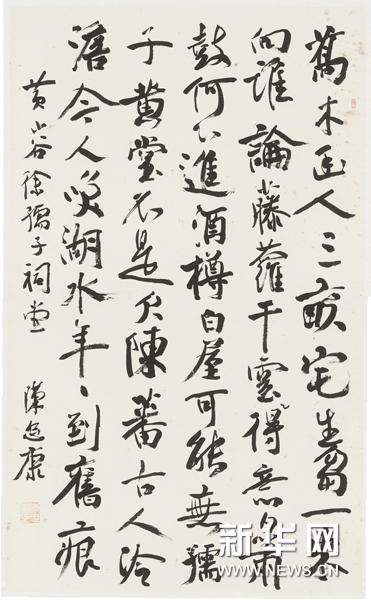 喬木幽人三畝宅生芻一束
向誰論藤蘿干雲得意
鼓何心進酒樽白屋可能無孺
子黄堂不是欠陳蕃古人冷
澹今人笑湖水年、到舊痕
黄山谷徐孺子祠堂 陳康
新华网
WWW.NEWS.CN